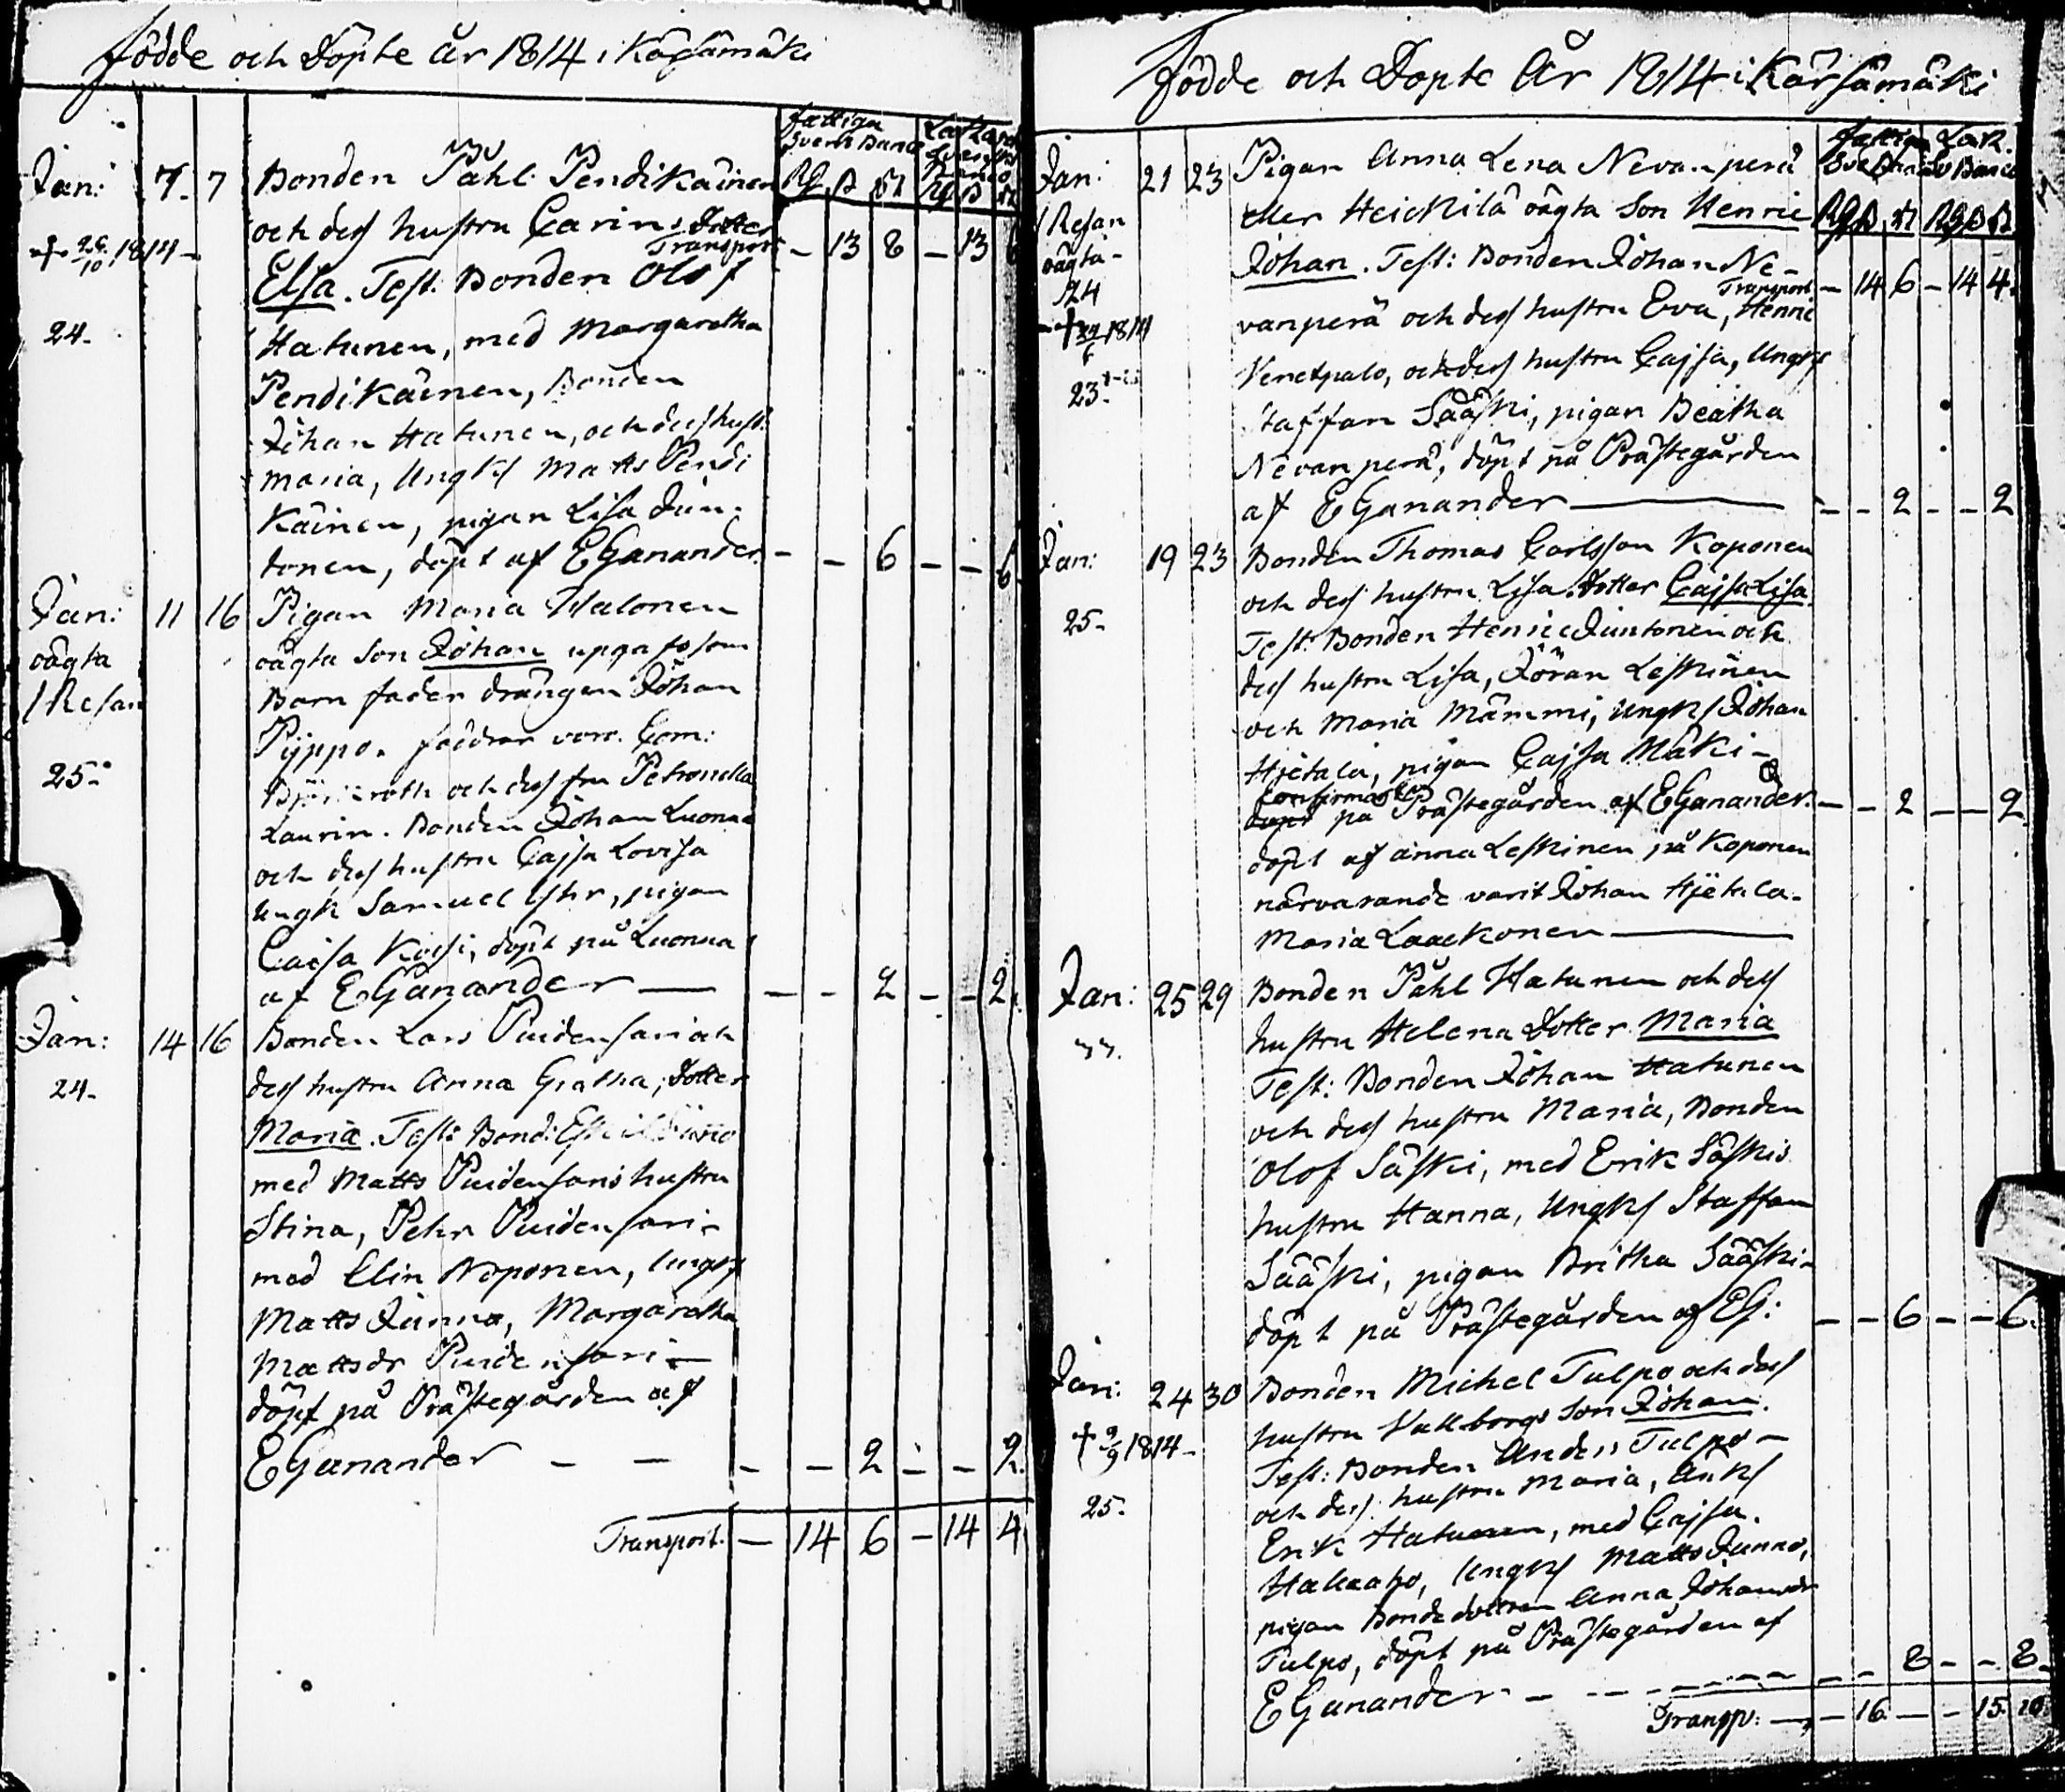 Födde och Döpte År 1814 i Kärsämäki
Fattiga
Svensk Banco
Rg ß
Jan: 7. 7 Bonden Påhl Pendikäinen
och dess hustru Carin Dotter
Transport — 13 8 — 13
+ 26/10 1814 —
Elsa. Test. Bonden Olof
24. Hatunen, med Margaretha
Pendikäinen, Bonden
Johan Hatunen, och dess hust:
Maria, Ungk Matts Pendi
Käinen, pigan Lisa Jun-
tonen, döpt af EGanander. — — 6 — — 6
Jan: 11 16 Pigan Maria Halonen
oägta oägta Son Johan upgafs som
/Resan Barn fader drängen Johan
Pyppo. faddrar voro. Com:
25. och dess fru Petronella
Laurin. Bonden Johan Luoma
och dess hustru Cajsa Lovisa
Ungk Samuel, pigan
Caisa, döpt på Luoma
af EGanander — — — 2 — — 2.
Jan: 14 16 Bonden Lars Puidensari och
24. dess hustru Anna Gretha, Dotter
Maria. Test: Bond: Eskil
med Matts Puidensaris hustru
Stina, Pehr Puidensari -
med Elin Noponen, Ungk
Matts Junno, Margaretha
Mattsdr Puidensari —
döpt på Prästegården af
EGanander — — — — 2 — — 2.
Transport. — 14 6 — 14 4
Födde och Döpte År 1814 i Kärsämäki
Fattiga Lask.
Rg ß Rg ß
Jan: 21 23 Pigan Anna Lena Nevanperä
/Resan eller Heickilä oägta Son Henric
oägta - Johan. Test: Bonden Johan Ne-
Transport — 14 6 — 14 4.
24 vanperä och dess hustru Eva, Henric
1814 Venetpalo, och dess hustru Cajsa, Ungk
23. Staffan Sääski, pigan Beatha
Nevanperä, döpt på Prästegården
af EGanander — — — 2 — — 2
Jan: 19 23 Bonden Thomas Carlsson Koponen
25. och dess hustru Lisa. Dotter Cajsa Lisa.
Test: Bonden Henric Juntonen och
dess hustru Lisa, Jöran Leskinen
och Maria Mämmi, Ungk Johan
Hjetala, pigan Cajsa Mäki -
confirmat
döpt på Prästegården af EGanander. — — 2 — — 2.
döpt af Anna Leskinen på Koponen
närvarande varit Johan Hjetala.
Maria Laackonen —
Jan: 25 29 Bonden Påhl Hatunen och dess
33. hustru Helena Dotter Maria
Test: Bonden Johan Hatunen
och dess hustru Maria, Bonden
Olof Säski, med Erik Säskis
hustru Hanna, Ungk Staffan
Sääski, pigan Britha Sääski -
döpt på Prästegården af EG: — — 6 — — 6.
Jan: 24 30 Bonden Michel Tulpo och dess
+ 9/9 1814 - hustru Vallborgs Son Johan.
Test: Bonden Anders Tulpo -
25. och dess hustru Maria,
Erik Hatunen, med Cajsa
Hakaaho, Ungk Matts Junno,
pigan Bondedottren Anna Johansdr
Tulpo, döpt på Prästegården af
EGanander — — — — 8 — — 8
Transp: — — 16. — — 15. 10.